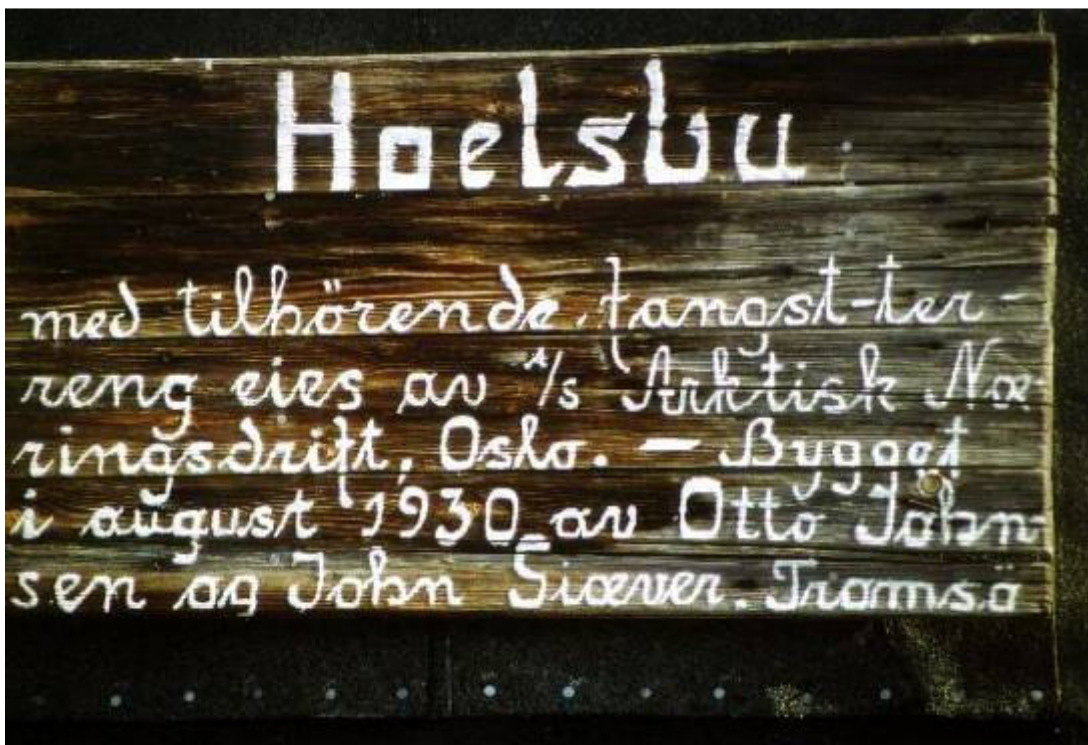 Hoelsbu
med tilhörende fangst-ter-
reng eies av A/S Arktisk Næ-
ringsdrift, Oslo. — Bygget
i august 1930 av Otto John-
sen og John Giæver. Tromsö